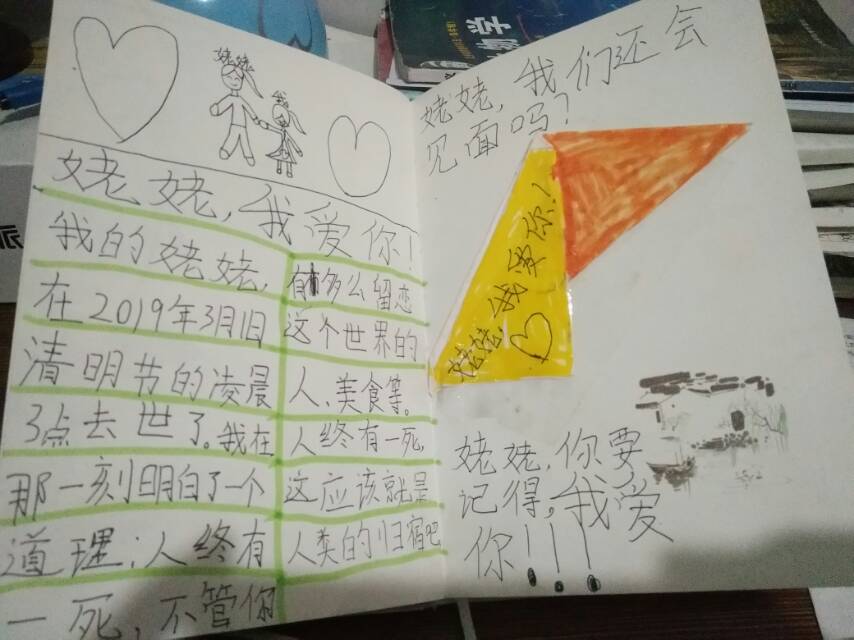 姥姥
我
姥姥,我爱你!
我的姥姥,
在2019年3月1日
清明节的凌晨
3点去世了。我在
那一刻明白了一个
道理:人终有
一死,不管你
有多么留恋
这个世界的
人、美食等。
人终有一死,
这应该就是
人类的归宿吧
姥姥,我们还会
见面吗?
姥姥,我爱你!
姥姥,你要
记得,我爱
你!!!
物学
派